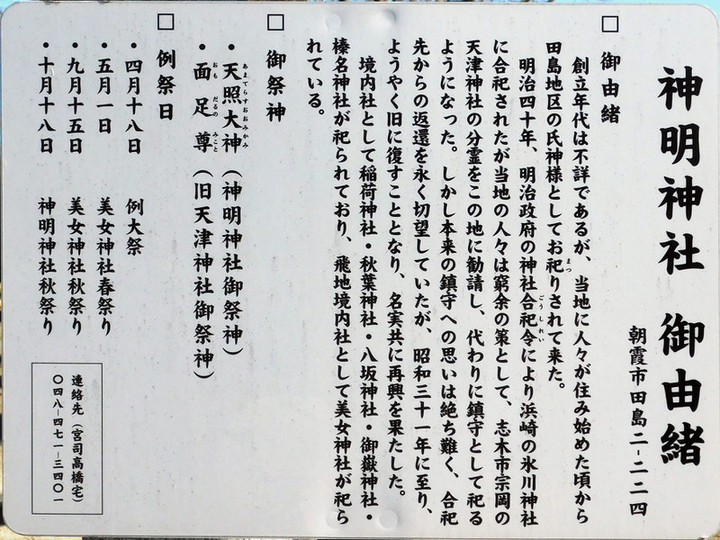 神明神社 御由緒
朝霞市田島二-二-二四
□ 御由緒
創立年代は不詳であるが、当地に人々が住み始めた頃から
田島地区の氏神様としてお祀りされて来た。
まつ
明治四十年、明治政府の神社合祀令により浜崎の氷川神社
ごうしれい
に合祀されたが当地の人々は窮余の策として、志木市宗岡の
天津神社の分霊をこの地に勧請し、代わりに鎮守として祀る
ようになった。しかし本来の鎮守への思いは絶ち難く、合祀
先からの返還を永く切望していたが、昭和三十一年に至り、
ようやく旧に復すこととなり、名実共に再興を果たした。
境内社として稲荷神社・秋葉神社・八坂神社・御嶽神社・
榛名神社が祀られており、飛地境内社として美女神社が祀ら
れている。
□ 御祭神
・天照大神（神明神社御祭神）
あまてらすおおみかみ
・面足尊（旧天津神社御祭神）
おもだるのみこと
□ 例祭日
・四月十八日 例大祭
・五月一日 美女神社春祭り
・九月十五日 美女神社秋祭り
・十月十八日 神明神社秋祭り
連絡先（宮司高橋宅）
〇四八-四七一-三四〇一